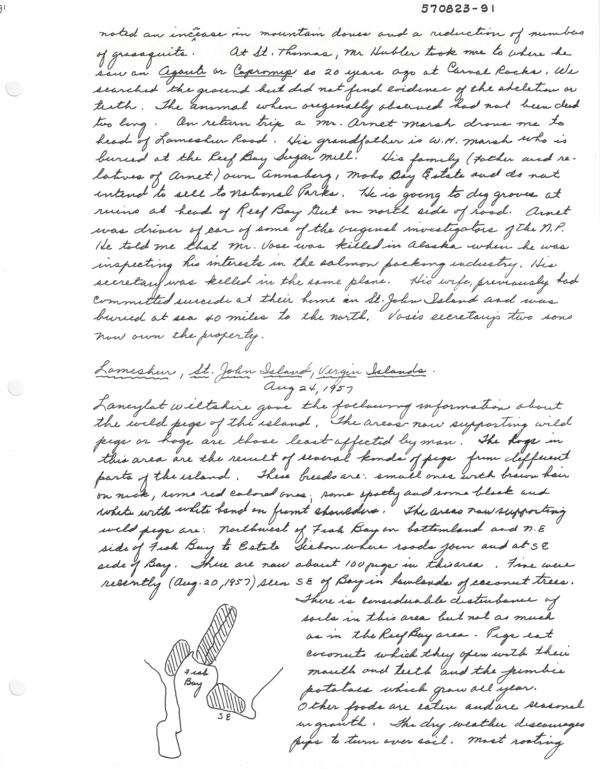 570823-91
noted an increase in mountain doves and a reduction of numbers
of grassquits. At St. Thomas, Mr Hubler took me to where he
saw an Agouti or Capromys so 20 years ago at Carval Rocks. We
searched the ground but did not find evidence of the skeleton or
teeth. The animal when originally observed had not been dead
too long. On return trip a Mr. Arnet Marsh drove me to
head of Lameshur Road. His grandfather is W.H. Marsh who is
buried at the Reef Bay Sugar Mill. His family (father and re-
latives of Arnet) own Annaberg, Maho Bay Estate and do not
intend to sell to National Parks. He is going to dig graves at
ruins at head of Reef Bay Gut on north side of road. Arnet
was driver of car of some of the original investigators of the N.P.
He told me that Mr. Vose was killed in Alaska when he was
inspecting his interests in the salmon packing industry. His
secretary was killed in the same plane. His wife, previously had
committed suicide at their home on St. John Island and was
buried at sea 40 miles to the north. Vose's secretary's two sons
now own the property.
Lameshur, St. John Island, Virgin Islands.
Aug 24, 1957
Wiltshire gave the following information about
the wild pigs of the island. The areas now supporting wild
pigs or hogs are those least affected by man. The hogs in
this area are the result of several kinds of pigs from different
parts of the island. These breeds are: small ones with brown hair
on neck, some red colored ones, some spotty and some black and
white with white band on front shoulders. The areas now supporting
wild pigs are: Northwest of Fish Bay on bottomland and N.E
side of Fish Bay to Estate Sieben where roads join and at SE
side of Bay. There are now about 100 pigs in this area. Five were
recently (Aug. 20, 1957) seen SE of Bay in lowlands of coconut trees.
There is considerable disturbance of
soils in this area but not as much
as in the Reef Bay area. Pigs eat
coconuts which they open with their
mouth and teeth and the
potatoes which grow all year.
Other foods are eaten and are seasonal
in growth. The dry weather discourages
pigs to turn over soil. Most rooting
Fish
Bay
SE